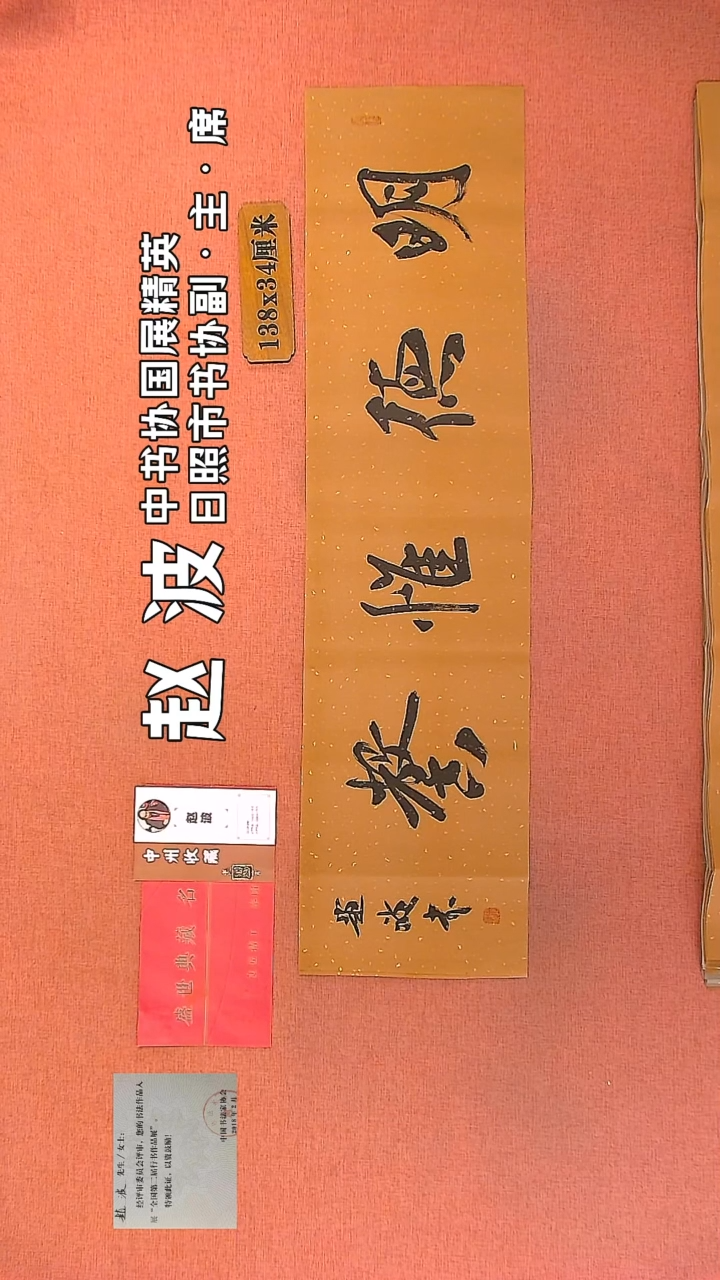 赵波
中书协国展精英
日照市书协副·主·席
138x34厘米
明德惟馨
赵波书
赵波
中州收藏
盛世典藏 名
赵波 先生/女士:
经评审委员会评审,您的书法作品入
展“全国第二届行书作品展”。
特颁此证,以资鼓励!
中国书法家协会
2018年2月